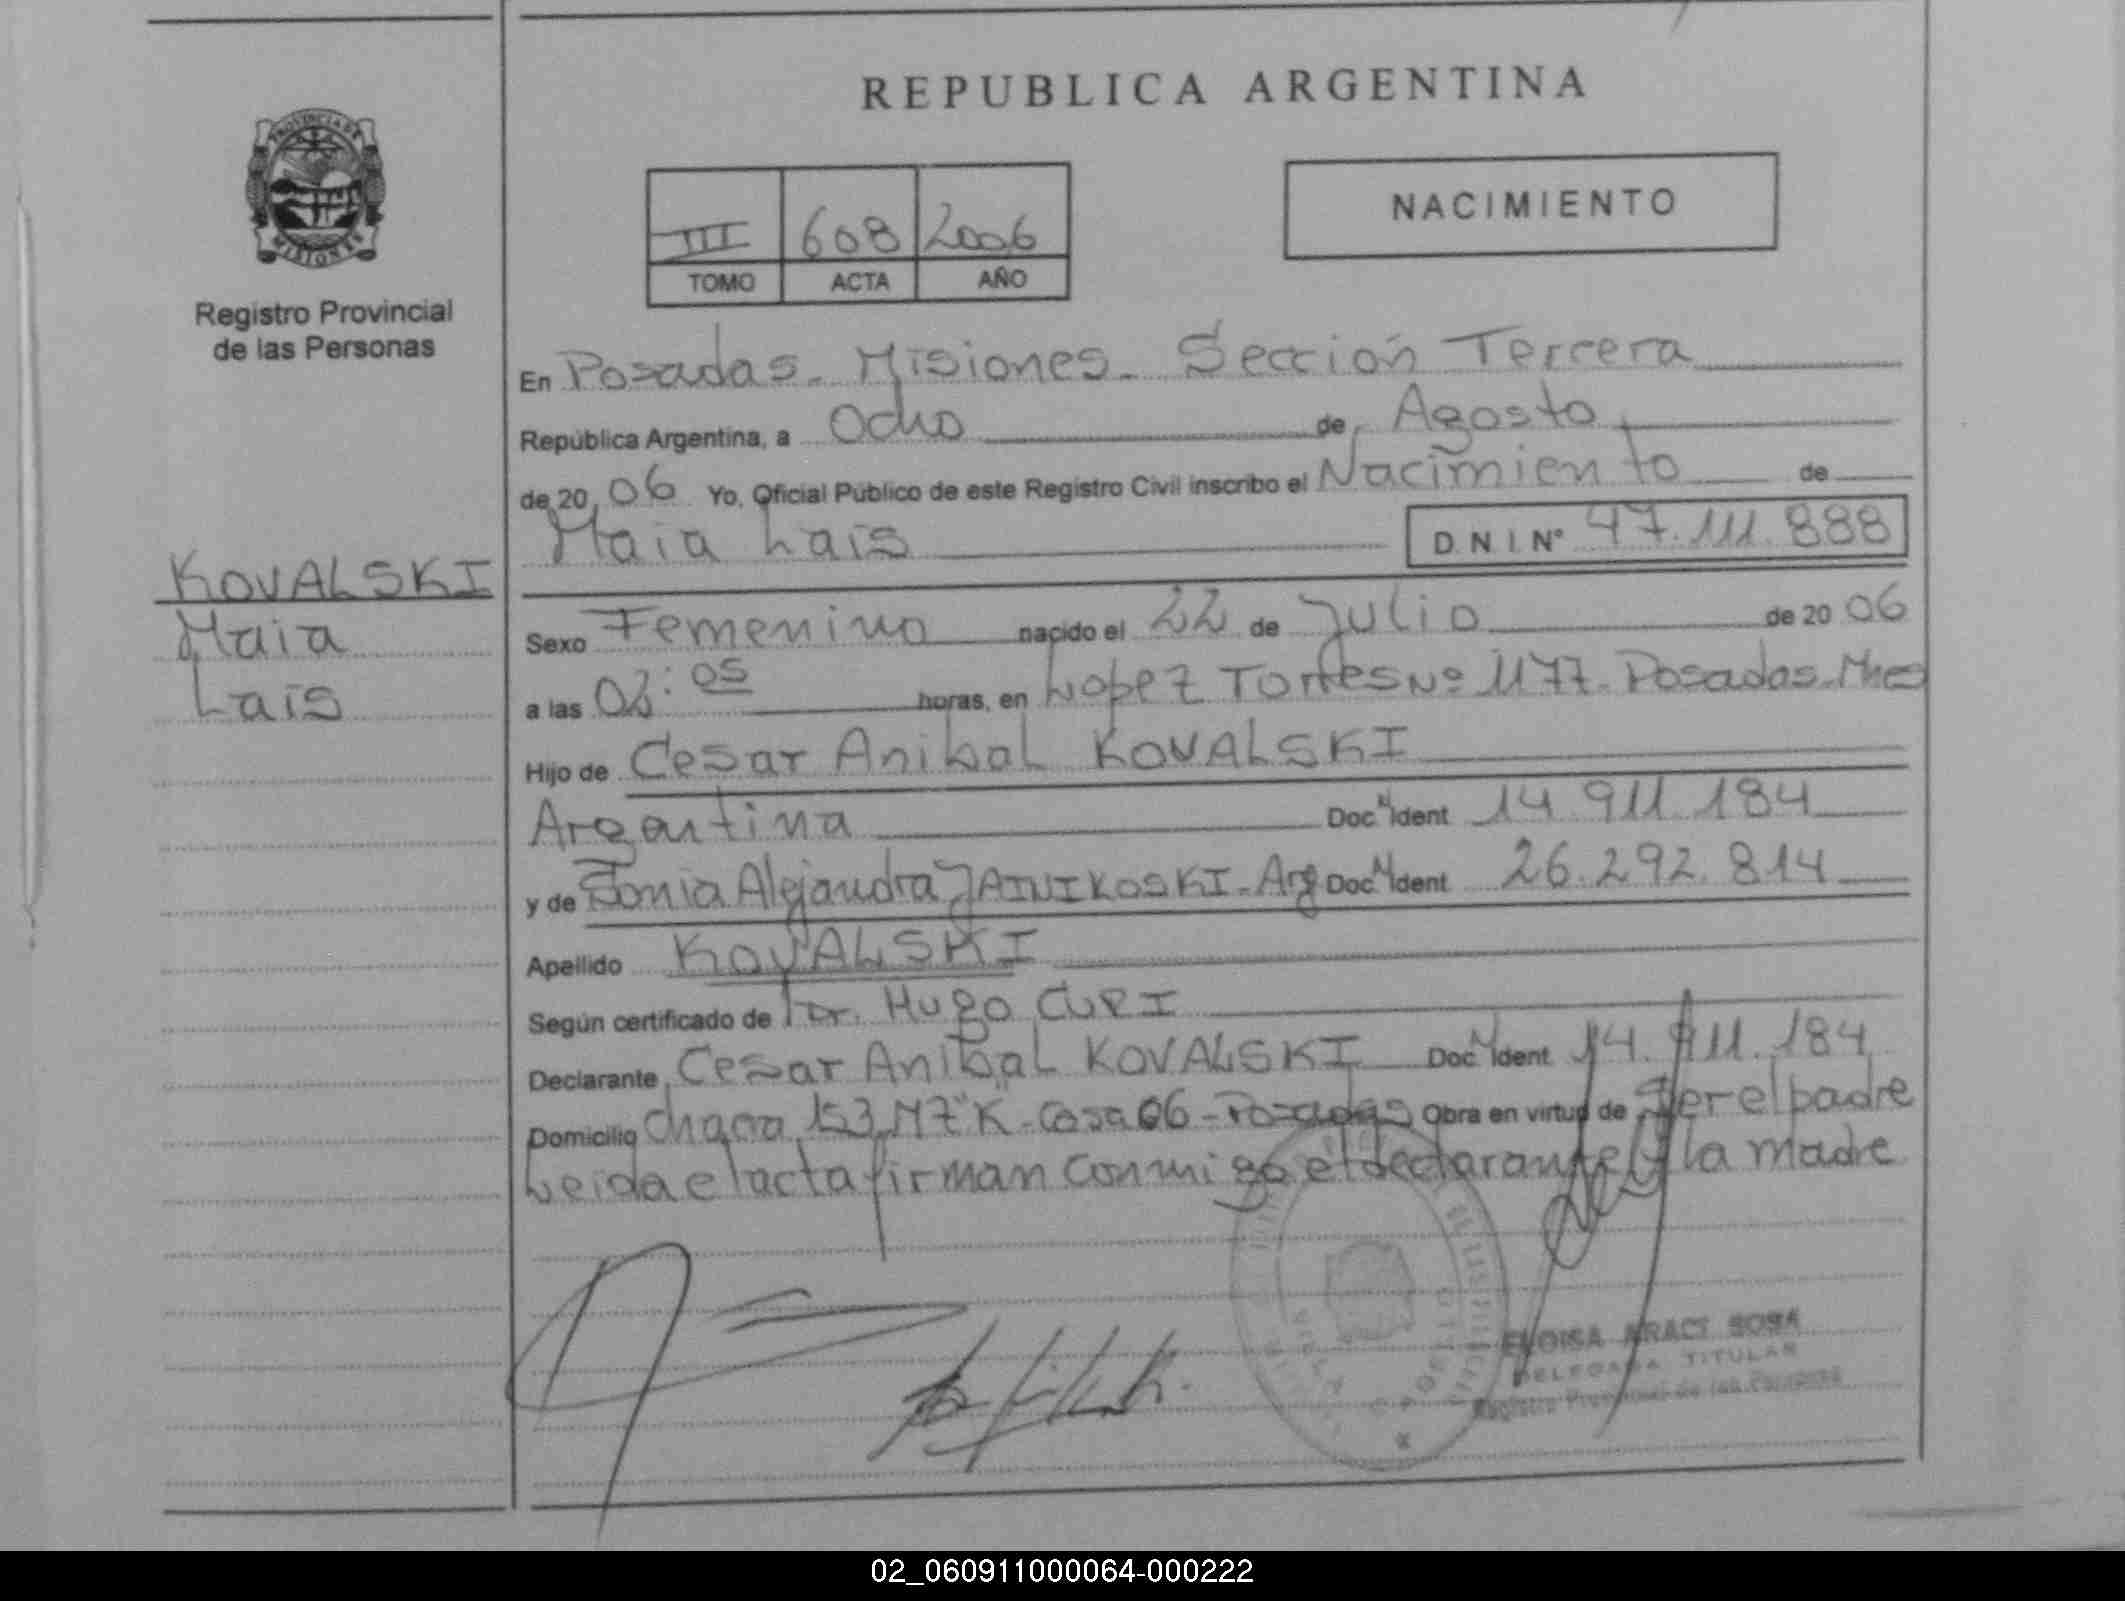 REPUBLICA ARGENTINA
PROVINCIA DE
MISIONES
Registro Provincial
de las Personas
III 608 2006
TOMO ACTA AÑO
NACIMIENTO
En Posadas. Misiones. Sección Tercera
República Argentina, a Ocho de Agosto
de 20 06 Yo, Oficial Público de este Registro Civil inscribo el Nacimiento de
Maia Lais D.N.I. N° 47.111.888
KOVALSKI
Maia
Lais
Sexo Femenino nacido el 22 de Julio de 20 06
a las 03:05 horas, en Lopez Torres Nº 1177. Posadas. Mnes
Hijo de Cesar Anibal KOVALSKI
Argentina Doc N Ident 14.911.184
y de Sonia Alejandra JAINIKOSKI. Arg Doc N Ident 26.292.814
Apellido KOVALSKI
Según certificado de Dr. Hugo CURI
Declarante Cesar Anibal KOVALSKI Doc N Ident 14.911.184
Domicilio Chacra 153 MZ "K" - Casa 06 - Posadas Obra en virtud de Ser el padre
Leida el acta firman conmigo el declarante y la madre
ELOISA ARACI SOSA
DELEGADA TITULAR
Registro Provincial de las Personas
02_060911000064-000222